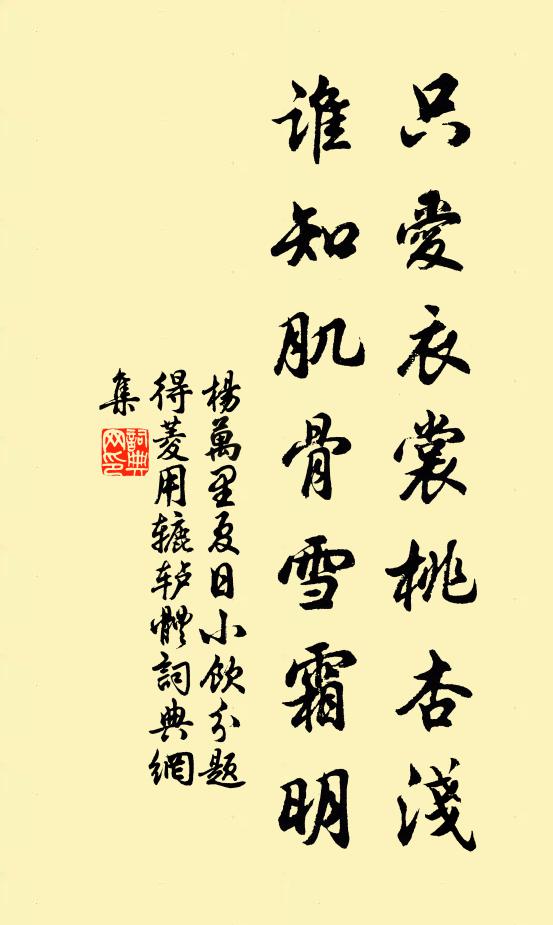 只愛衣裳桃杏淺
誰知肌骨雪霜明
楊萬里夏日小飲分題
得菱用辘轳體詞典網
集
詞典
网印